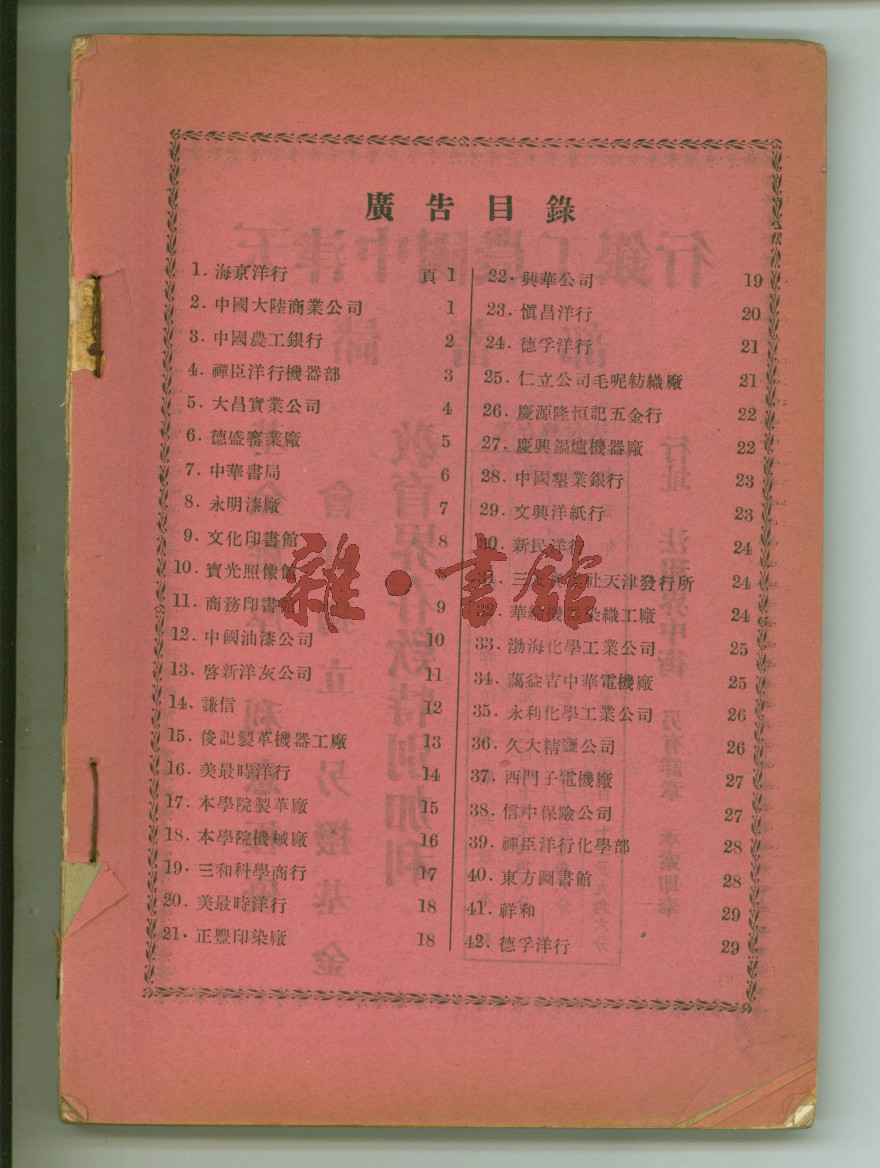 廣告目錄
1. 海京洋行 頁 1
2. 中國大陸商業公司 1
3. 中國農工銀行 2
4. 禪臣洋行機器部 3
5. 大昌實業公司 4
6. 德盛窰業廠 5
7. 中華書局 6
8. 永明漆廠 7
9. 文化印書館 8
10. 寶光照像館
11. 商務印書館 9
12. 中國油漆公司 10
13. 啓新洋灰公司 11
14. 謙信 12
15. 俊記製革機器工廠 13
16. 美最時洋行 14
17. 本學院製革廠 15
18. 本學院機械廠 16
19. 三和科學商行 17
20. 美最時洋行 18
21. 正豐印染廠 18
22. 興華公司 19
23. 愼昌洋行 20
24. 德孚洋行 21
25. 仁立公司毛呢紡織廠 21
26. 慶源隆恒記五金行 22
27. 慶興鍋爐機器廠 22
28. 中國墾業銀行 23
29. 文興洋紙行 23
30. 新民洋行 24
31. 三 社天津發行所 24
32. 華 機 染織工廠 24
33. 渤海化學工業公司 25
34. 藹益吉中華電機廠 25
35. 永利化學工業公司 26
36. 久大精鹽公司 26
37. 西門子電機廠 27
38. 信中保險公司 27
39. 禪臣洋行化學部 28
40. 東方圖書館 28
41. 祥和 29
42. 德孚洋行 29
雜·書館